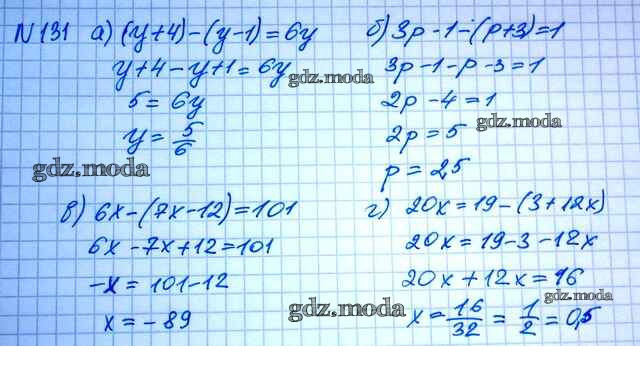 №131 а) (y+4)-(y-1)=6y
y+4-y+1=6y
gdz.moda
5=6y
y=5/6
gdz.moda
б) 3p-1-(p+3)=1
3p-1-p-3=1
2p-4=1
gdz.moda
2p=5
p=2,5
в) 6x-(7x-12)=101
6x-7x+12=101
-x=101-12
x=-89
gdz.moda
г) 20x=19-(3+12x)
20x=19-3-12x
20x+12x=16
gdz.moda
x=16/32=1/2=0,5